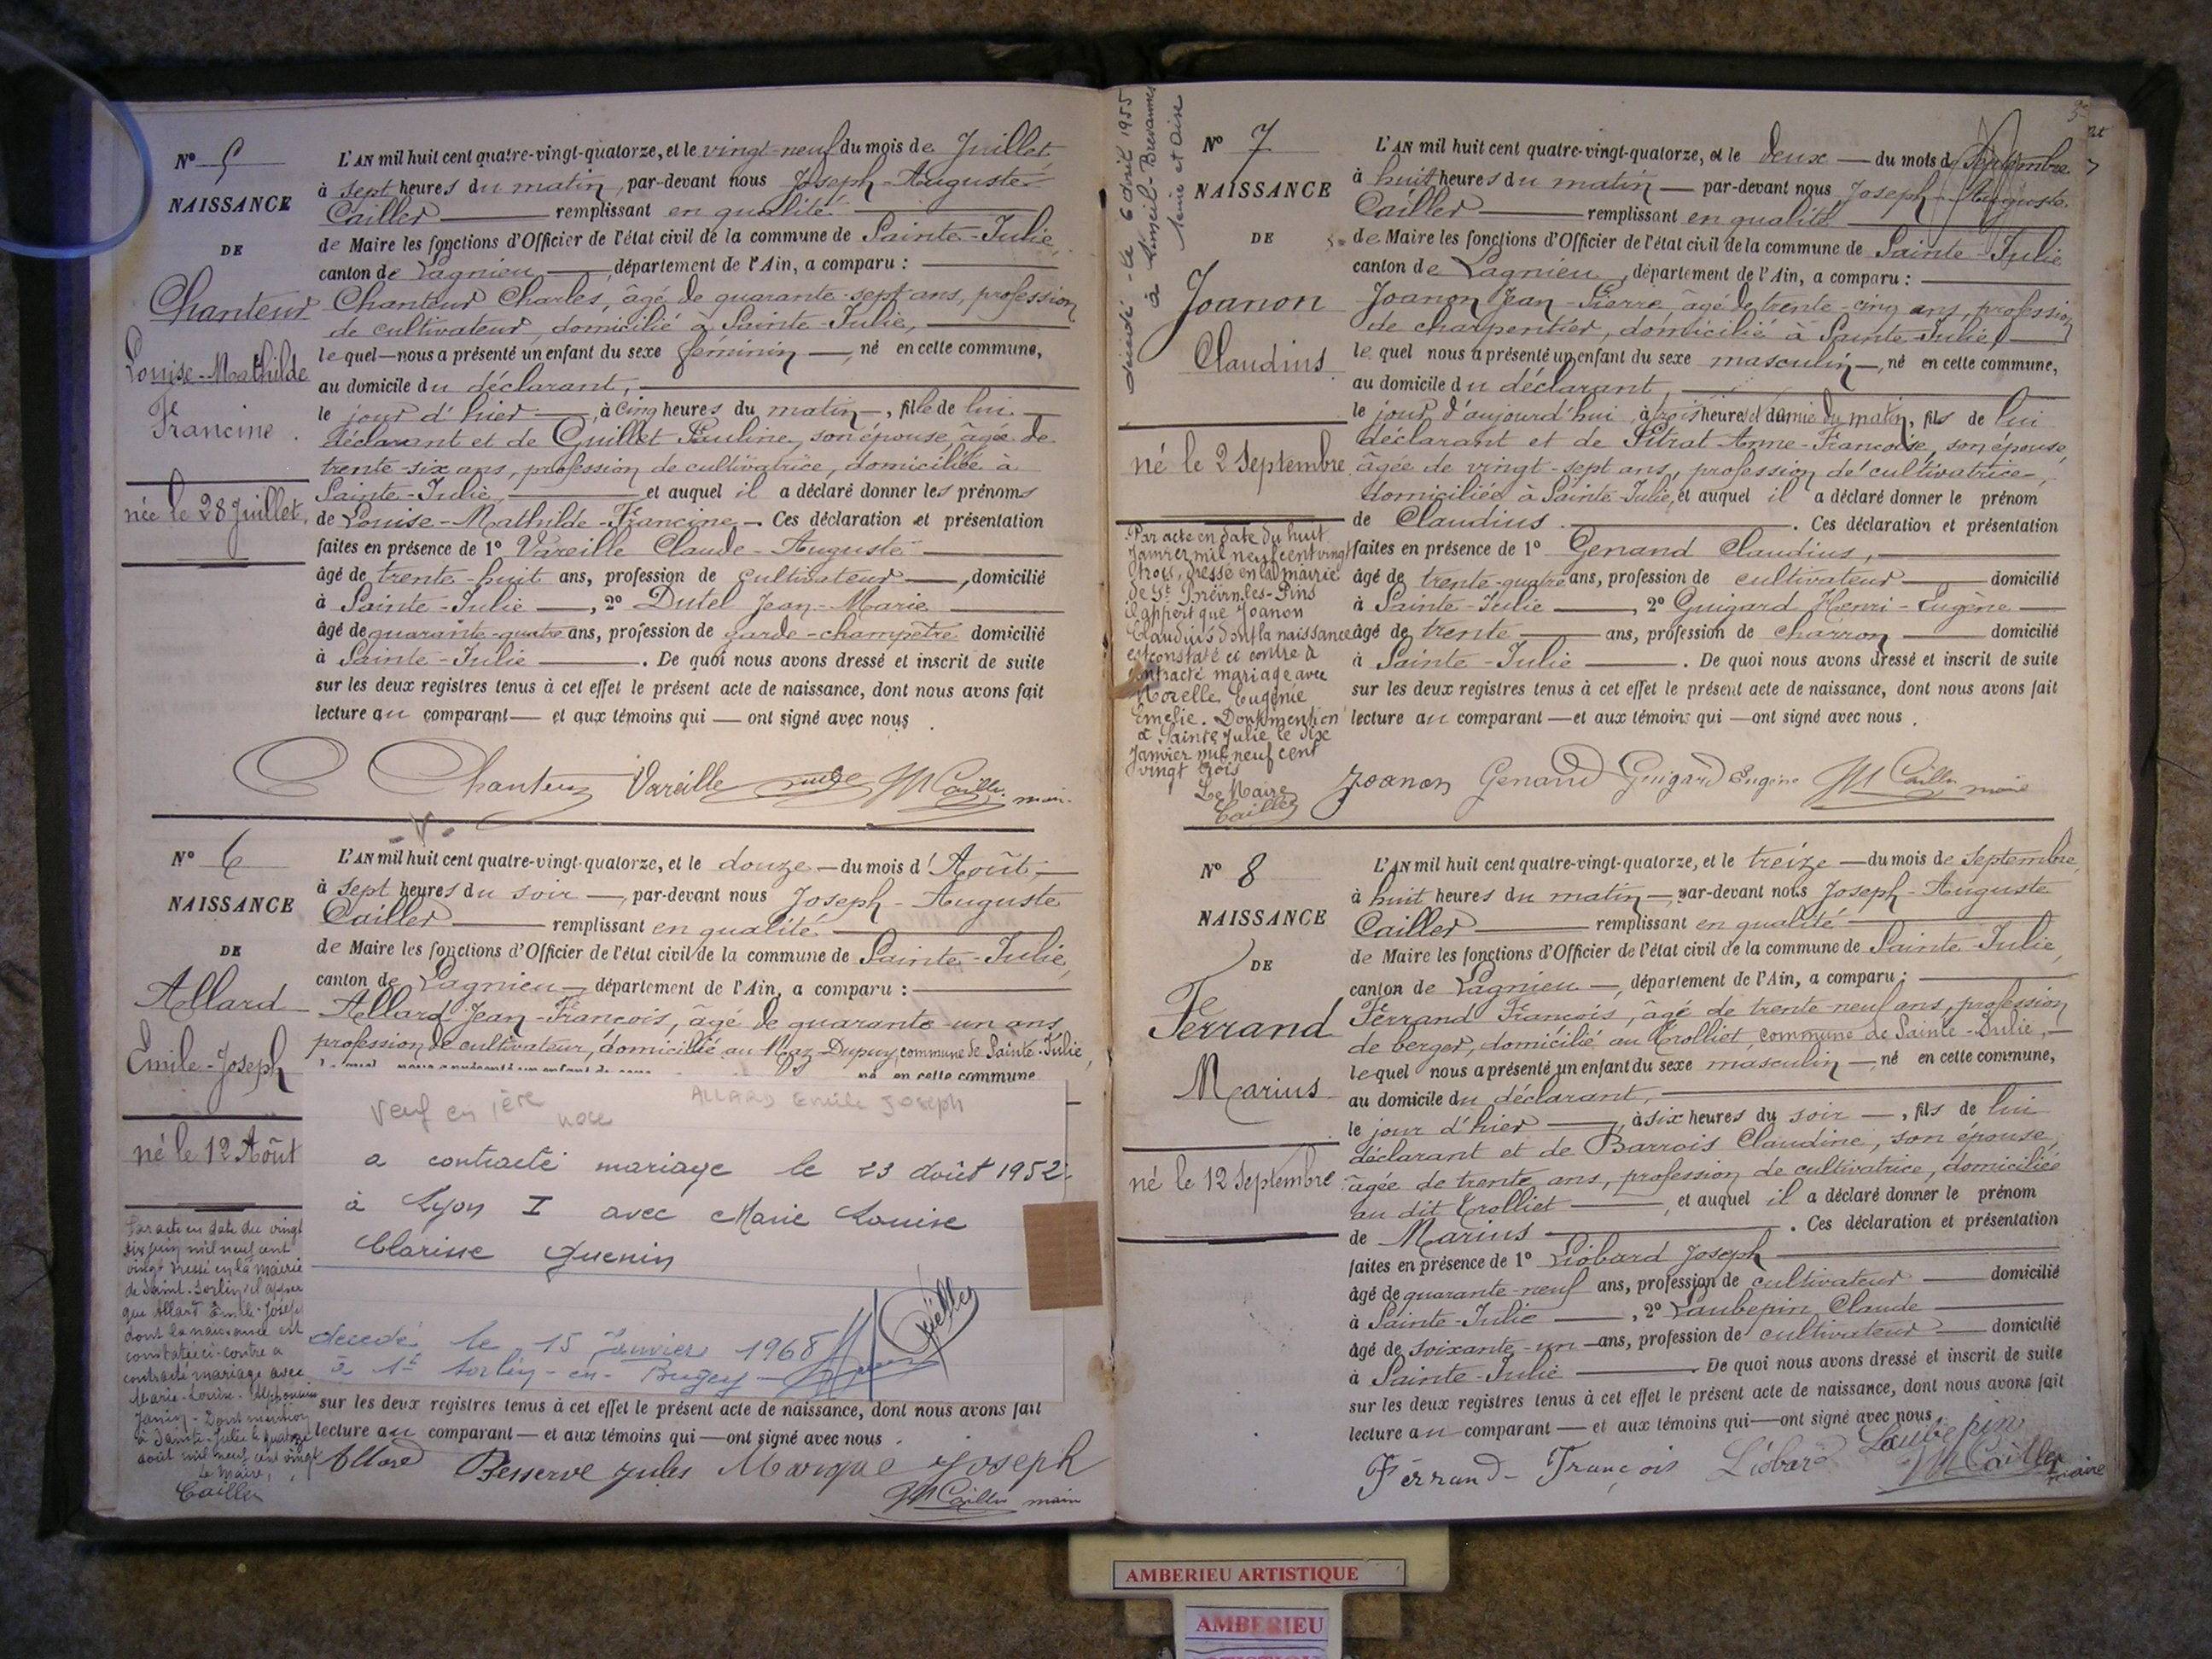 N° 5
NAISSANCE
DE
Chanteur
Louise-Mathilde
Francine.
née le 28 Juillet.
L'AN mil huit cent quatre-vingt-quatorze, et le vingt-neuf du mois de Juillet
à sept heures du matin, par-devant nous Joseph-Auguste
Cailler remplissant en qualité
de Maire les fonctions d'Officier de l'état civil de la commune de Sainte-Julie,
canton de Lagnieu, département de l'Ain, a comparu :
Chanteur Charles, âgé de quarante-sept ans, profession
de cultivateur, domicilié à Sainte-Julie,
lequel nous a présenté un enfant du sexe féminin, né en cette commune,
au domicile du déclarant,
le jour d'hier, à cinq heures du matin, fille de lui
déclarant et de Guillet Pauline, son épouse, âgée de
trente-six ans, profession de cultivatrice, domiciliée à
Sainte-Julie, et auquel il a déclaré donner les prénoms
de Louise-Mathilde-Francine. Ces déclaration et présentation
faites en présence de 1° Vareille Claude-Auguste
âgé de trente-huit ans, profession de cultivateur, domicilié
à Sainte-Julie, 2° Dutel Jean-Marie
âgé de quarante-quatre ans, profession de garde-champêtre domicilié
à Sainte-Julie. De quoi nous avons dressé et inscrit de suite
sur les deux registres tenus à cet effet le présent acte de naissance, dont nous avons fait
lecture au comparant et aux témoins qui ont signé avec nous
Chanteur Vareille Cailler maire
N° 6
NAISSANCE
DE
Allard
Emile-Joseph
né le 12 Août
Par acte en date du vingt
six juin mil neuf cent
vingt dressé en la mairie
de Saint-Sorlin, il appert
que Allard Emile-Joseph
dont la naissance est
constatée ci-contre a
contracté mariage avec
Marie-Louise-Alphonsine
Dont mention
à Sainte-Julie le quatorze
août mil neuf cent vingt
Le Maire,
Cailler
L'AN mil huit cent quatre-vingt-quatorze, et le douze du mois d'Août
à sept heures du soir, par-devant nous Joseph-Auguste
Cailler remplissant en qualité
de Maire les fonctions d'Officier de l'état civil de la commune de Sainte-Julie,
canton de Lagnieu, département de l'Ain, a comparu :
Allard Jean-François, âgé de quarante-un ans,
profession de cultivateur, domicilié au Maz-Dupuy, commune de Sainte-Julie,
né en cette commune
Veuf en 1ère noce ALLARD Emile Joseph
a contracté mariage le 23 août 1952
à Lyon I avec Marie Louise
Clarisse Quenin
décédé le 15 Janvier 1968
à St Sorlin-en-Bugey
sur les deux registres tenus à cet effet le présent acte de naissance, dont nous avons fait
lecture au comparant et aux témoins qui ont signé avec nous.
Allard Besserve Jules Marque Joseph
Cailler maire
N° 7
NAISSANCE
DE
Joanon
Claudius
décédé le 6 avril 1955
à Limeil-Brevannes
Seine et Oise
né le 2 Septembre
Par acte en date du huit
Janvier mil neuf cent vingt
trois, dressé en la mairie
de St Brévin-les-Pins
il appert que Joanon
Claudius dont la naissance
est constatée ci contre a
contracté mariage avec
Morelle Eugénie
Emélie. Dont mention
à Sainte Julie le dix
Janvier mil neuf cent
vingt trois
Le Maire
Cailler
L'AN mil huit cent quatre-vingt-quatorze, et le deux du mois de Septembre
à huit heures du matin par-devant nous Joseph-Auguste
Cailler remplissant en qualité
de Maire les fonctions d'Officier de l'état civil de la commune de Sainte-Julie
canton de Lagnieu, département de l'Ain, a comparu :
Joanon Jean-Pierre âgé de trente-cinq ans, profession
de charpentier, domicilié à Sainte-Julie
lequel nous a présenté un enfant du sexe masculin, né en cette commune,
au domicile du déclarant,
le jour d'aujourd'hui, à trois heures et demie du matin, fils de lui
déclarant et de Pitrat Anne-Françoise, son épouse,
âgée de vingt-sept ans, profession de cultivatrice,
domiciliée à Sainte-Julie, et auquel il a déclaré donner le prénom
de Claudius. Ces déclaration et présentation
faites en présence de 1° Genand Claudius,
âgé de trente-quatre ans, profession de cultivateur domicilié
à Sainte-Julie, 2° Guigard Henri-Eugène
âgé de trente ans, profession de charron domicilié
à Sainte-Julie. De quoi nous avons dressé et inscrit de suite
sur les deux registres tenus à cet effet le présent acte de naissance, dont nous avons fait
lecture au comparant et aux témoins qui ont signé avec nous.
Joanon Genand Guigard Eugène Cailler maire
N° 8
NAISSANCE
DE
Ferrand
Marius
né le 12 Septembre
L'AN mil huit cent quatre-vingt-quatorze, et le treize du mois de Septembre,
à huit heures du matin, par-devant nous Joseph-Auguste
Cailler remplissant en qualité
de Maire les fonctions d'Officier de l'état civil de la commune de Sainte-Julie,
canton de Lagnieu, département de l'Ain, a comparu :
Ferrand François, âgé de trente-neuf ans, profession
de berger, domicilié au Trolliet, commune de Sainte-Julie,
lequel nous a présenté un enfant du sexe masculin, né en cette commune,
au domicile du déclarant,
le jour d'hier, à six heures du soir, fils de lui
déclarant et de Barrois Claudine, son épouse,
âgée de trente ans, profession de cultivatrice, domiciliée
au dit Trolliet, et auquel il a déclaré donner le prénom
de Marius. Ces déclaration et présentation
faites en présence de 1° Liobard Joseph
âgé de quarante-neuf ans, profession de cultivateur domicilié
à Sainte-Julie, 2° Laubepin Claude
âgé de soixante-un ans, profession de cultivateur domicilié
à Sainte-Julie. De quoi nous avons dressé et inscrit de suite
sur les deux registres tenus à cet effet le présent acte de naissance, dont nous avons fait
lecture au comparant et aux témoins qui ont signé avec nous.
Ferrand François Liobard Laubepin
Cailler maire
AMBERIEU ARTISTIQUE
AMBERIEU